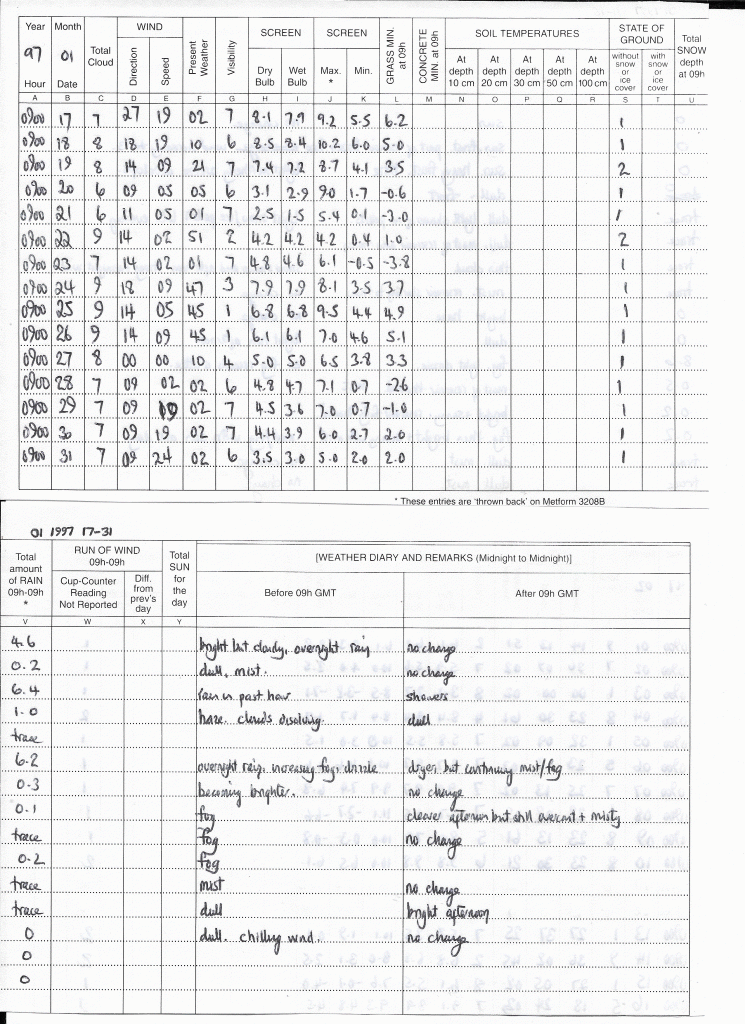 Year Month Total Cloud WIND Present Weather Visibility SCREEN SCREEN GRASS MIN. at 09h CONCRETE MIN. at 09h SOIL TEMPERATURES STATE OF GROUND Total SNOW depth at 09h
97 01 Direction Speed Dry Bulb Wet Bulb Max. * Min. At depth 10 cm At depth 20 cm At depth 30 cm At depth 50 cm At depth 100 cm without snow or ice cover with snow or ice cover
Hour Date
A B C D E F G H I J K L M N O P Q R S T U
0900 17 7 27 19 02 7 8.1 7.9 9.2 5.5 6.2 1
0900 18 8 18 19 10 6 8.5 8.4 10.2 6.0 5.0 1
0900 19 8 14 09 21 7 7.4 7.2 8.7 4.1 3.5 2
0900 20 6 09 05 05 6 3.1 2.9 9.0 1.7 -0.6 1
0900 21 6 11 05 01 7 2.5 1.5 5.4 0.1 -3.0 1
0900 22 9 14 02 51 2 4.2 4.2 4.2 0.4 1.0 2
0900 23 7 14 02 01 7 4.8 4.6 6.1 -0.5 -3.8 1
0900 24 9 18 09 47 3 7.9 7.9 8.1 3.5 3.7 1
0900 25 9 14 05 45 1 6.8 6.8 9.5 4.4 4.9 1
0900 26 9 14 09 45 1 6.1 6.1 7.0 4.6 5.1 1
0900 27 8 00 00 10 4 5.0 5.0 6.5 3.8 3.3 1
0900 28 7 09 02 02 6 4.8 4.7 7.1 0.7 -2.6 1
0900 29 7 09 02 7 4.5 3.6 7.0 0.7 -1.0 1
0900 30 7 09 19 02 7 4.4 3.9 6.0 2.7 2.0 1
0900 31 7 09 24 02 6 3.5 3.0 5.0 2.0 2.0 1
* These entries are 'thrown back' on Metform 3208B
01 1997 17-31
Total amount of RAIN 09h-09h * RUN OF WIND 09h-09h Total SUN for the day [WEATHER DIARY AND REMARKS (Midnight to Midnight)]
Cup-Counter Reading Not Reported Diff. from prev's day Before 09h GMT After 09h GMT
V W X Y
4.6 bright but cloudy, overnight rain no change
0.2 dull, mist. no change
6.4 rain in past hour showers
1.0 haze. clouds disolving. dull
trace
6.2 overnight rain, increasing fog, drizzle dryer but continuing mist/fog
0.3 becoming brighter. no change
0.1 fog clearer afternoon but still overcast + misty
trace fog no change
0.2 fog
trace mist no change
trace dull bright afternoon
0 dull. chilling wind. no change
0
0